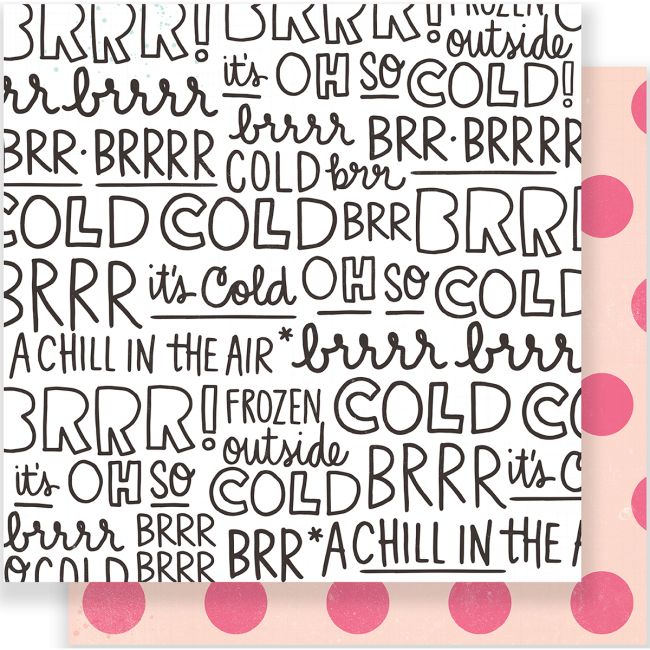 BRRR! FROZEN
outside
it's OH SO COLD!
brr brrrr
brrrr BRR·BRRRR
BRR·BRRRR
COLD brr
COLD COLD BRR BRRR
BRRR it's Cold OH SO COLD
A CHILL IN THE AIR* brrrr brrr
BRRR! FROZEN COLD CO
outside
it's OH SO COLD BRRR it's C
brrrr BRRR BRR* A CHILL IN THE A
COLD BRRR